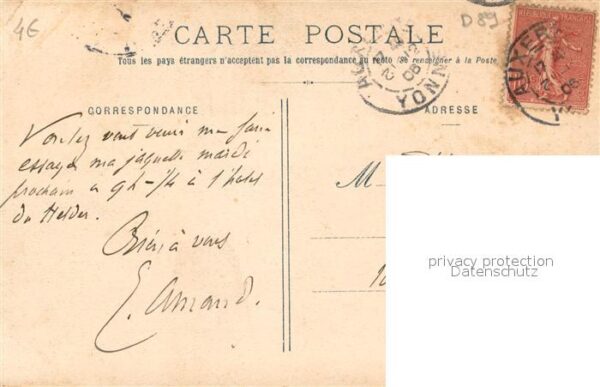 4€
D 89
CARTE POSTALE
Tous les pays étrangers n'acceptent pas la correspondance au recto (Se renseigner à la Poste)
CORRESPONDANCE
ADRESSE
RÉPUBLIQUE FRANÇAISE
AUXERRE
YONNE
08
Voulez vous venir me faire
essayer ma jaquette mardi
prochain a 9h-1/4 à l'hotel
du Helder.
à vous
E. Amand.
M
privacy protection
Datenschutz